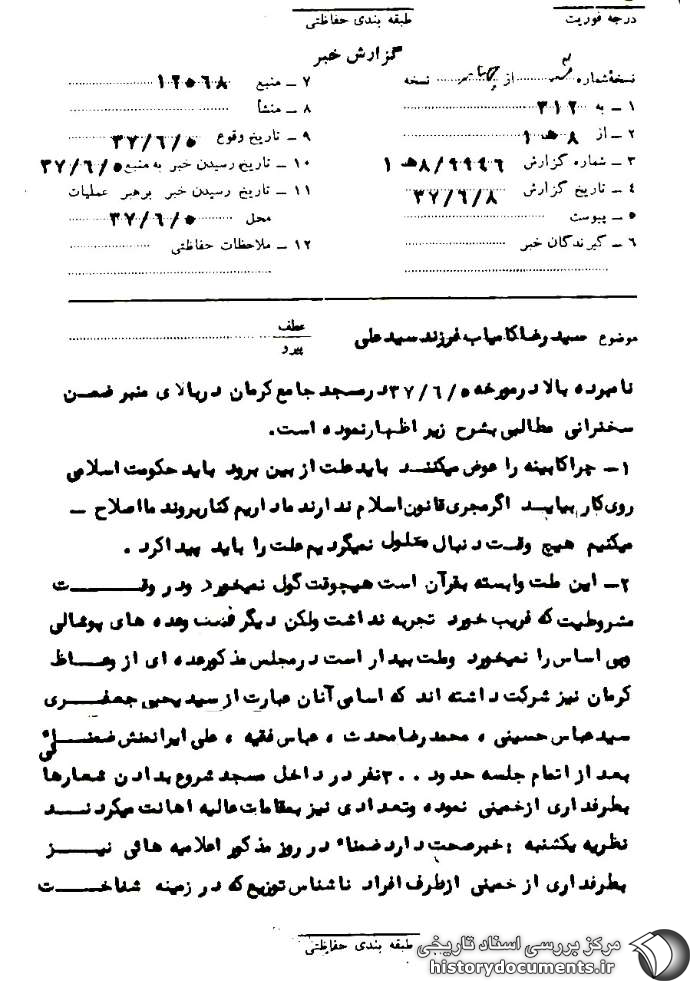 درجه فوریت
طبقه بندی حفاظتی
گزارش خبر
نسخهٔ شماره سه از چهار نسخه
۱ ـ به ۳۱۲
۲ ـ از ۸ هـ ۱
۳ ـ شماره گزارش ۸/۹۹۹۶ هـ ۱
۴ ـ تاریخ گزارش ۳۷/۶/۸
۵ ـ پیوست
۶ ـ گیرندگان خبر
۷ ـ منبع ۱۲۵۶۸
۸ ـ منشأ
۹ ـ تاریخ وقوع ۳۷/۶/۵
۱۰ ـ تاریخ رسیدن خبر به منبع ۳۷/۶/۵
۱۱ ـ تاریخ رسیدن خبر برهبر عملیات
محل ۳۷/۶/۵
۱۲ ـ ملاحظات حفاظتی
موضوع سیدرضا کامیاب فرزند سیدعلی
عطف
پیرو
نامبرده بالا درمورخه ۳۷/۶/۵ درمسجد جامع کرمان دربالای منبر ضمن
سخنرانی مطالبی بشرح زیر اظهارنموده است.
۱ـ چراکابینه را عوض میکنند باید علت از بین برود باید حکومت اسلامی
روی کار بیاید اگرمجری قانون اسلام ندارند ماداریم کناربروند مااصلاح ـ
میکنیم هیچ وقت دنبال معلول نمیگردیم علت را باید پیداکرد .
۲ـ این ملت وابسته بقرآن است هیچوقت گول نمیخورد ودر وقت
مشروطیت که فریب خورد تجربه نداشت ولکن دیگر فریب وعده های پوشالی
وبی اساس را نمیخورد وملت بیدار است درمجلس مذکورعده ای از وعاظ
کرمان نیز شرکت داشته اند که اسامی آنان عبارت از سید یحیی جعفری
سیدعباس حسینی ، محمدرضا محدث ، عباس فقیه ، علی ایرانمنش ضمناً
بعد از اتمام جلسه حدود ۳۰۰ نفر در داخل مسجد شروع بدادن شعارها
بطرفداری ازخمینی نموده وتعدادی نیز بمقامات عالیه اهانت میکردند
نظریه یکشنبه : خبرصحت دارد ضمناً در روز مذکور اعلامیه هائی نیز
بطرفداری از خمینی ازطرف افراد ناشناس توزیع که در زمینه شناخت
طبقه بندی حفاظتی
مرکز بررسی اسناد تاریخی
historydocuments.ir